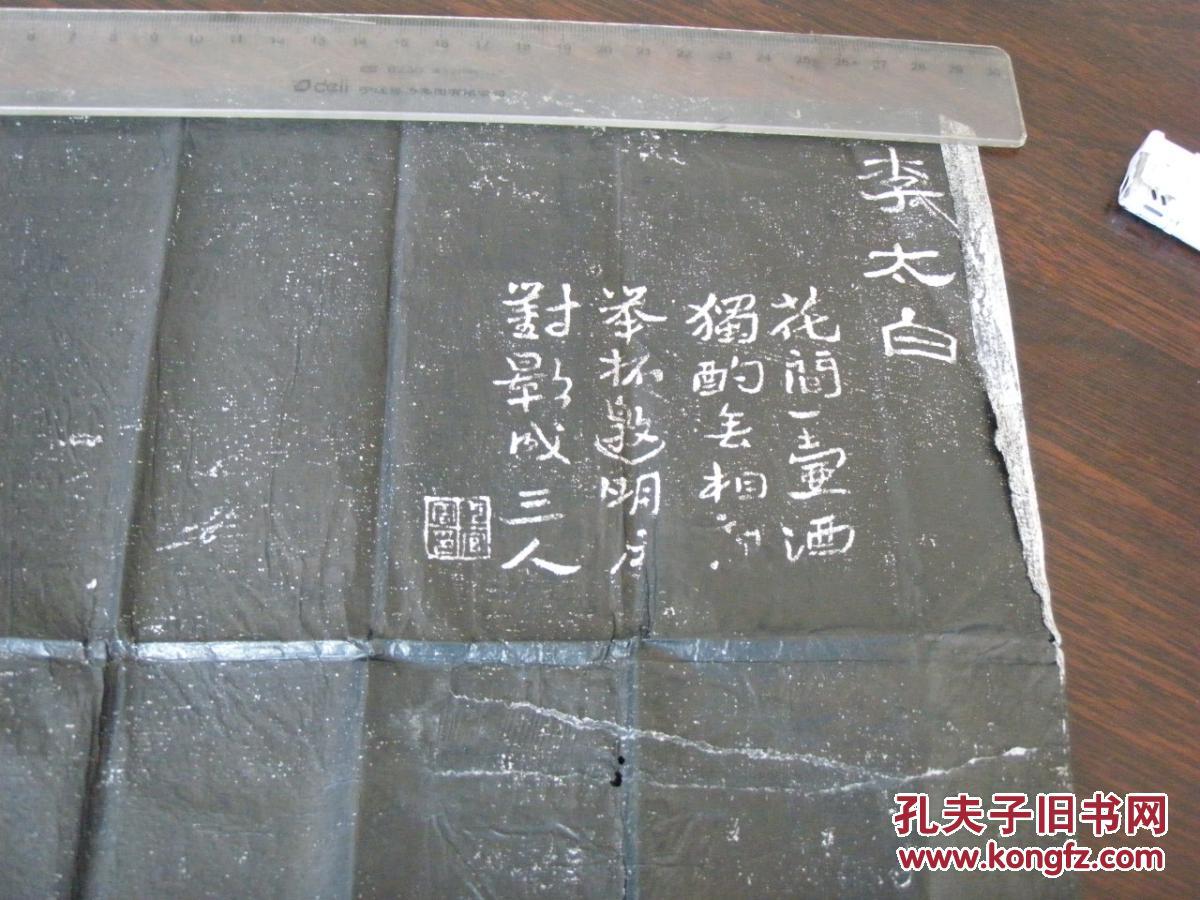 6 7 8 9 10 11 12 13 14 15 16 17 18 19 20 21 22 23 24 25 26 27 28 29 30
deli
李太白
花間一壺酒
獨酌无相
举杯邀明月
對影成三人
孔夫子旧书网
www.kongfz.com